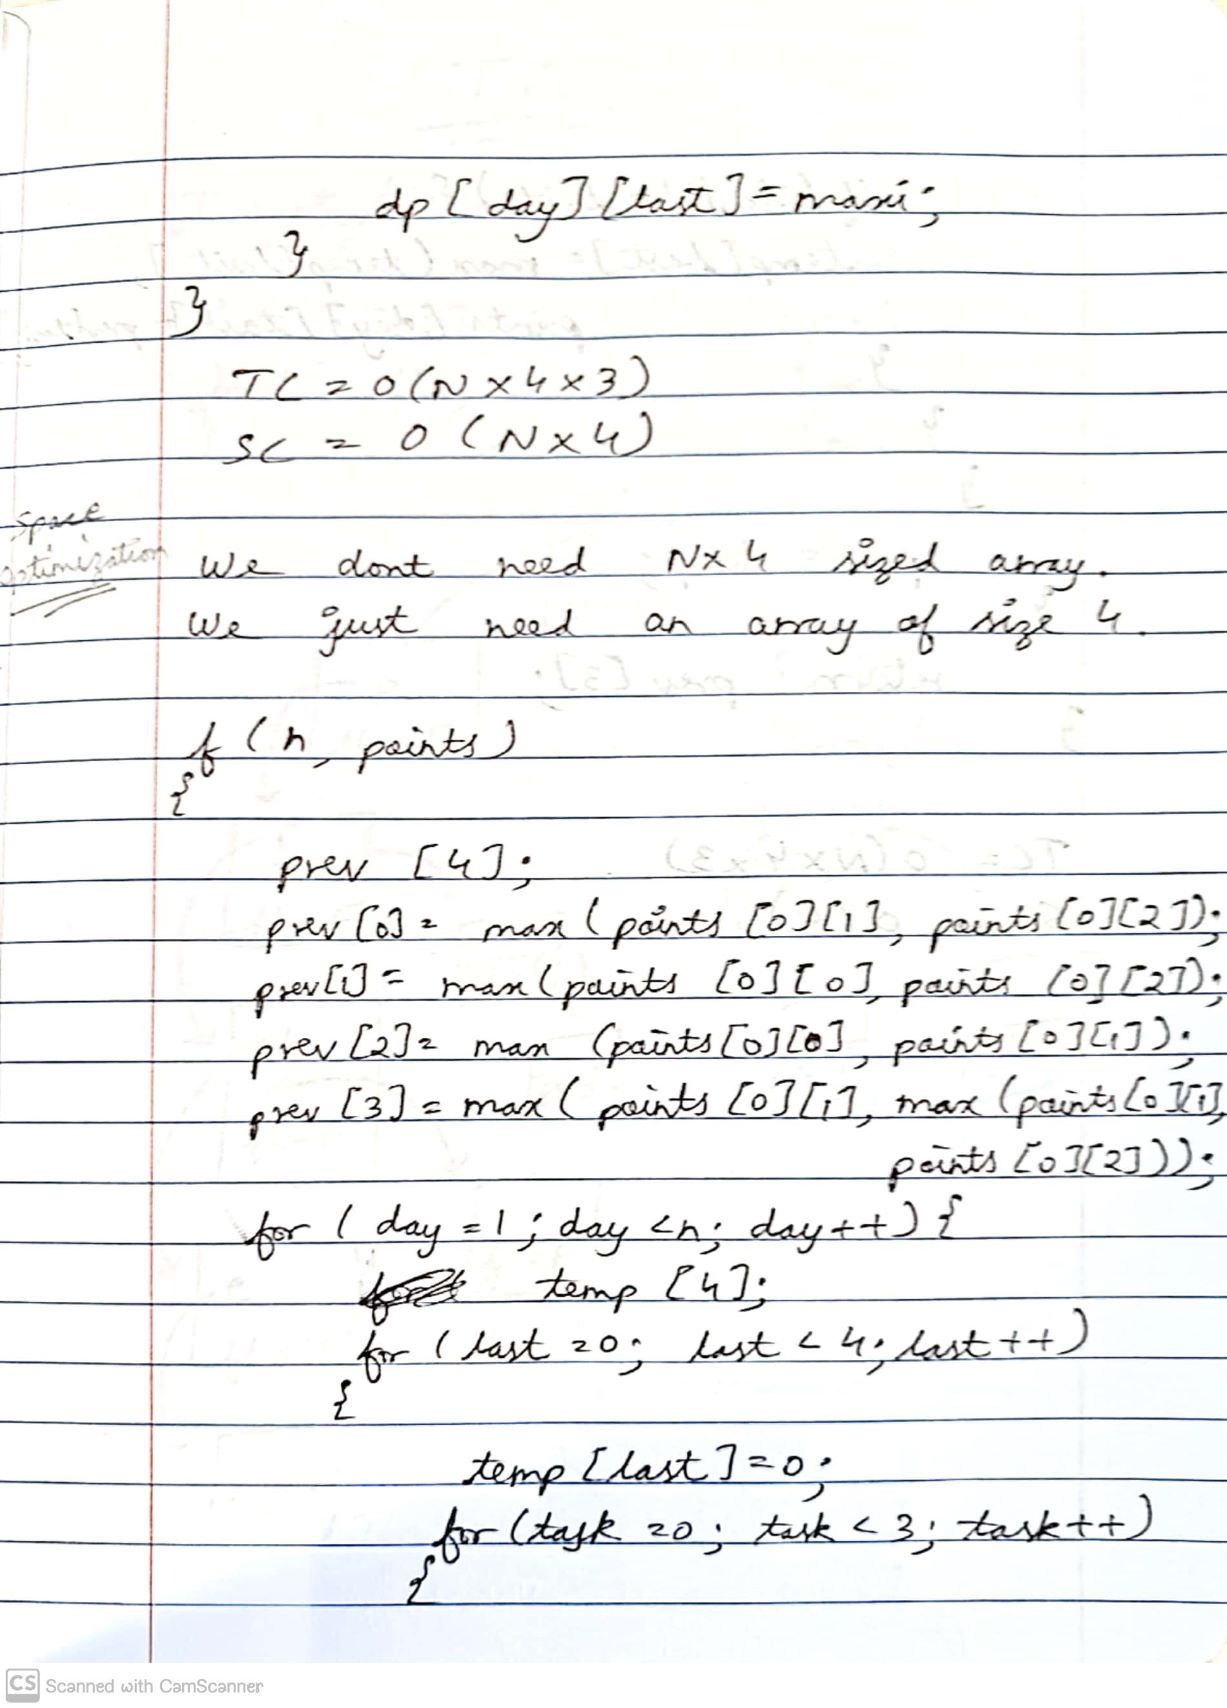 dp [day] [last] = maxi;
}
}
TC = O(N x 4 x 3)
SC = O (N x 4)
space
optimization
We dont need Nx4 sized array.
We just need an array of size 4.
f (n, points)
{
prev [4];
prev [0] = max ( points [0][1], points [0][2]);
prev[1] = max (points [0][0], points [0][2]);
prev [2] = max (points [0][0], points [0][1]);
prev [3] = max ( points [0][1], max (points [0][1],
points [0][2]));
for ( day = 1 ; day < n; day++) {
temp [4];
for ( last = 0; last < 4; last++)
{
temp [last] = 0;
for (task = 0; task < 3; task++)
{
CS Scanned with CamScanner